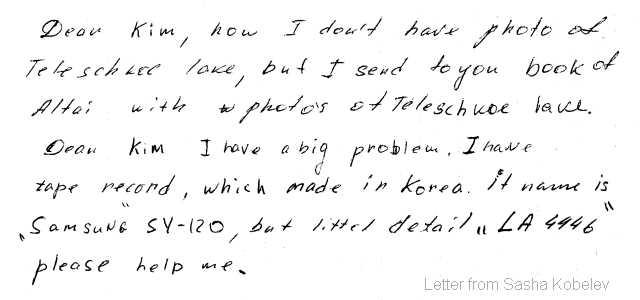 Dear Kim, now I don't have photo of
Teleschkoe lake, but I send to you book of
Altai with photo's of Teleschkoe lake.
Dear Kim I have a big problem. I have
tape record, which made in Korea. it name is
„Samsung" SY-120, but littel detail „LA 4446"
please help me.
Letter from Sasha Kobelev